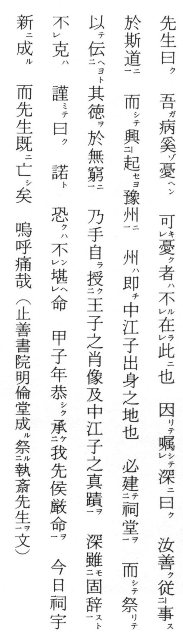 先生曰ク　吾ガ病奚ゾ憂ヘン　可キレ憂フ者ハ不ルレ在ラレ此ニ也　因リテ嘱シテレ深ニ曰ク　汝善ク従二事ス
於斯道一ニ　而シテ興二起セヨ豫州一ニ　州ハ即チ中江子出身之地也　必建テ二祠堂一ヲ　而シテ祭リテ
以テ伝二ヘヨト其徳ヲ於無窮一ニ　乃手自ラ授ク二王子之肖像及中江子之真蹟一ヲ　深雖モ二固辞一スト
不レ克ハ　謹ミテ曰ク　諾ト　恐クハ不ンレ堪ヘレ命ニ　甲子年恭シク承二ケ我先侯厳命一ヲ　今日祠宇
新ニ成ル　而先生既ニ亡シ矣　嗚呼痛哉（止善書院明倫堂成ル祭二ル執斎先生一ヲ文）